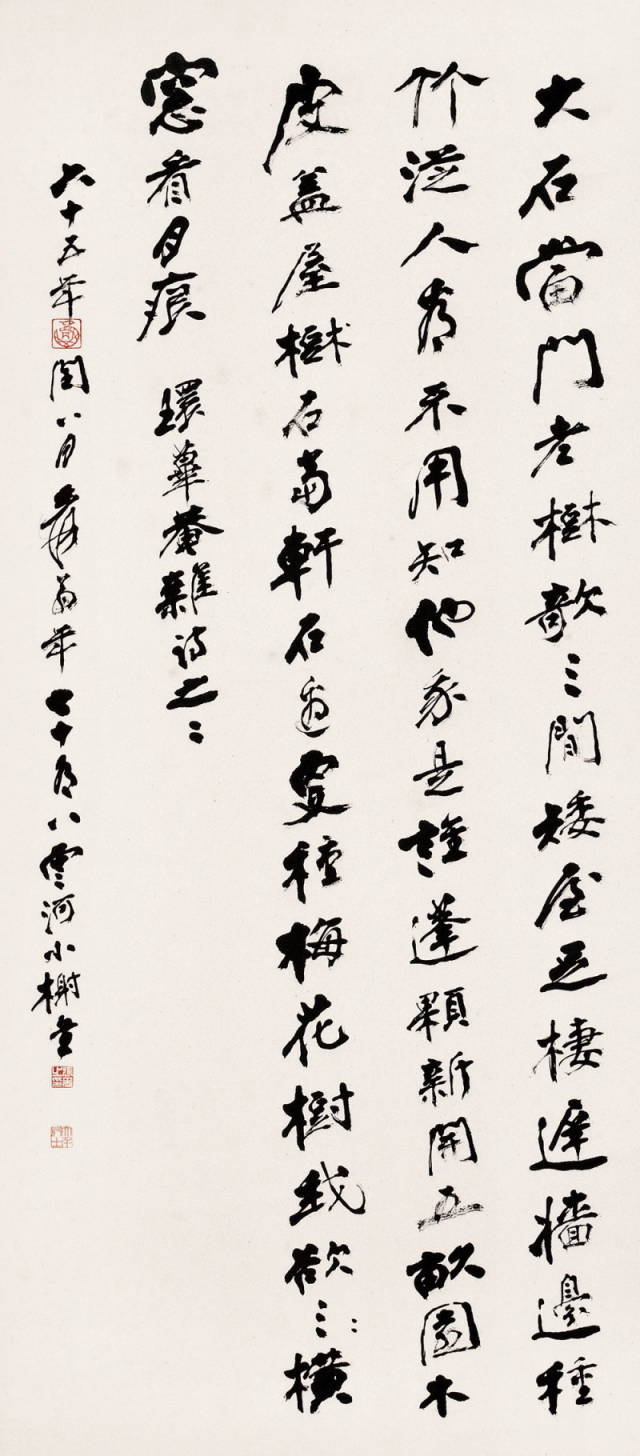 大石當門老樹欹三間矮屋足棲遲牆邊種
竹從人看不用知他我是誰蓬顆新開五畝園木
皮蓋屋樹石當軒石邊更種梅花樹我欲三橫
窓看月痕 環蓽菴雜詩之二
六十五年閏八月爰翁年七十有八雲河小榭書